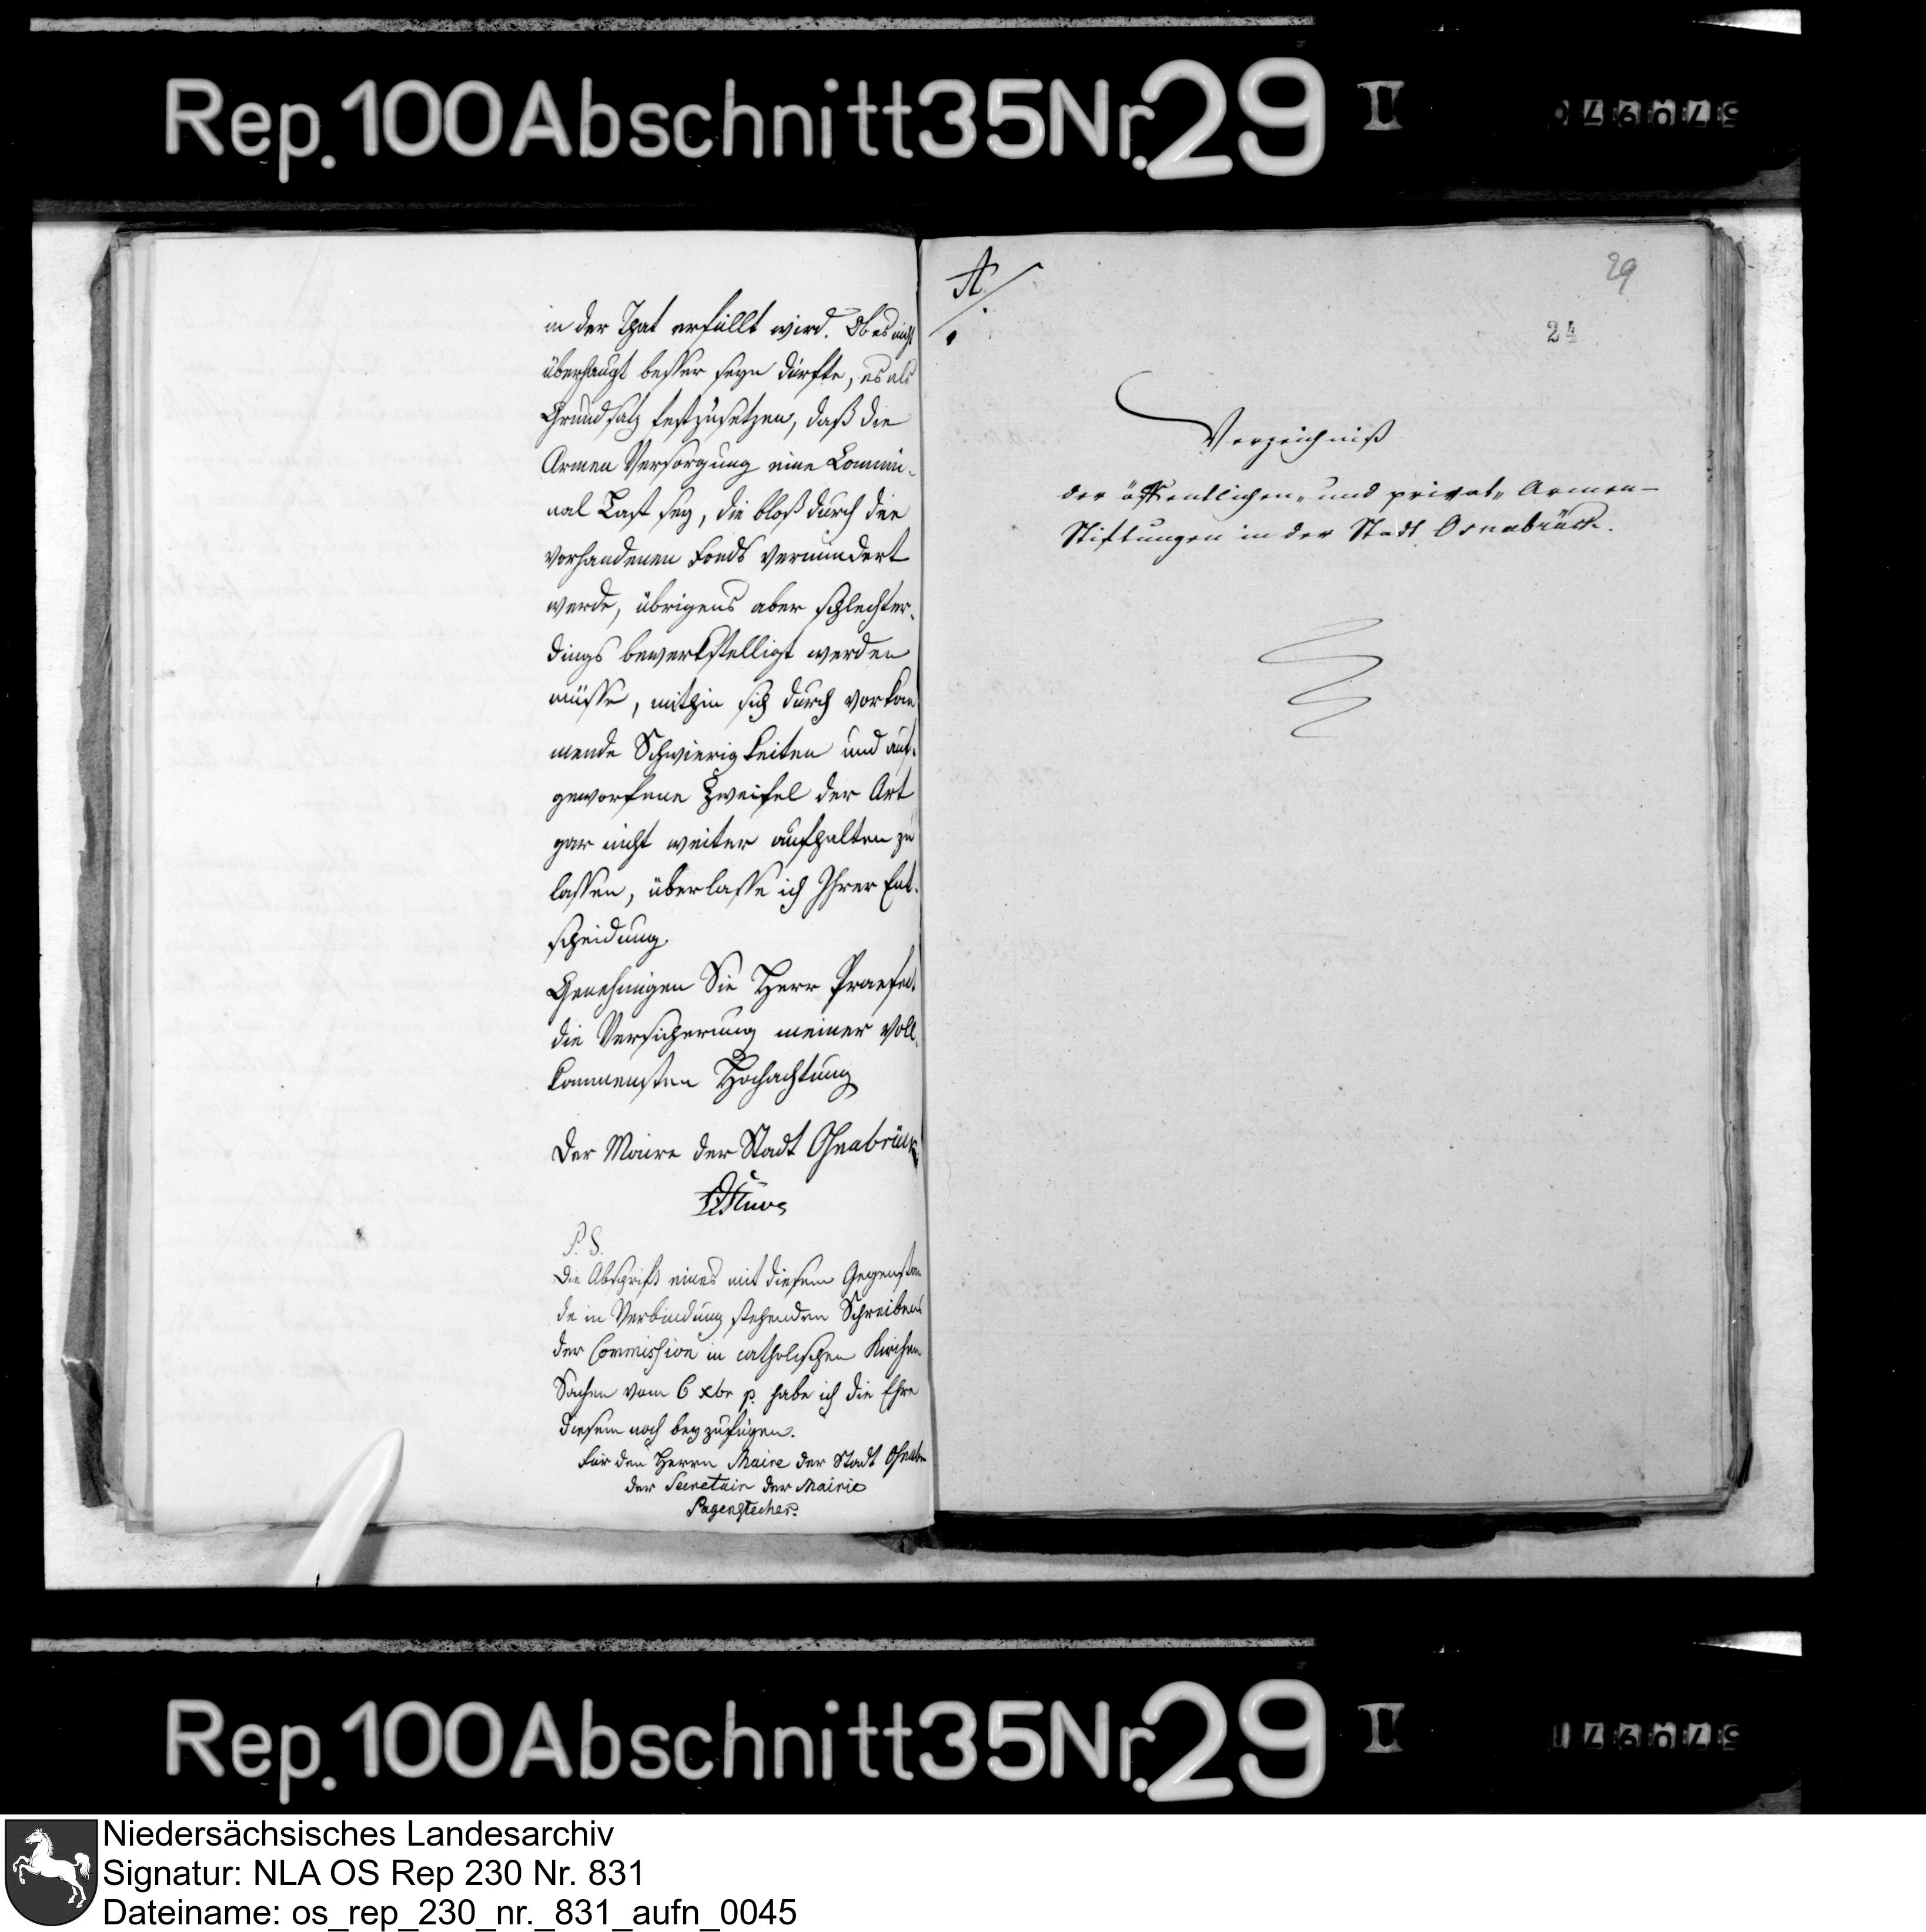 Rep. 100 Abschnitt 35 Nr. 29 II
in der That erfüllt wird. Ob es nicht
überhaupt besser seyn dürfte, es als
Grundsatz festzusetzen, daß die
Armen Versorgung eine Commu-
nal Last sey, die bloß durch die
vorhandenen Fonds vermindert
werde, übrigens aber schlechter-
dings bewerkstelligt werden
müsse, mithin sich durch vorkom
mende Schwierigkeiten und auf-
geworfene Zweifel der Art
gar nicht weiter aufhalten zu
lassen, überlasse ich Ihrer Ent-
scheidung.
Genehmigen Sie Herr Praefect
die Versicherung meiner voll-
kommensten Hochachtung
Der Maire der Stadt Osnabrück
P. S.
Die Abschrift eines mit diesem Gegenstan
de in Verbindung stehenden Schreibens
der Commission in catholischen Kirchen
Sachen vom 6 xbr p. habe ich die Ehre
diesem noch beyzufügen.
Für den Herrn Maire der Stadt Osnabr
der Secretair der Mairie
Pagenstecher.
A.
29
24
Verzeichniß
der öffentlichen- und privat- Armen-
Stiftungen in der Stadt Osnabrück.
Rep. 100 Abschnitt 35 Nr. 29 II
Niedersächsisches Landesarchiv
Signatur: NLA OS Rep 230 Nr. 831
Dateiname: os_rep_230_nr._831_aufn_0045